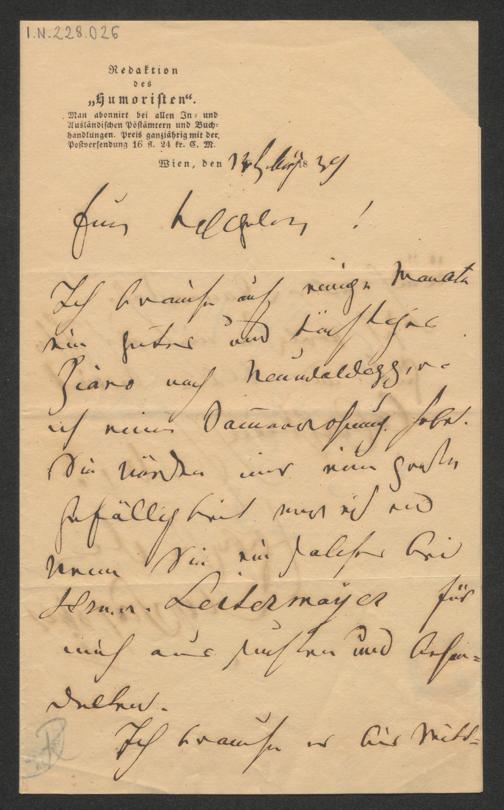 I.N.228.026
Redaktion
des
„Humoristen“.
Man abonnirt bei allen In- und
Ausländischen Postämtern und Buch-
handlungen. Preis ganzjährig mit der
Postversendung 16 fl. 24 kr. C. M.
Wien, den 18 39
!
Ich brauche auf einige Monate
ein gutes und
Piano nach Neuwaldegg, wo
ich eine Sommerwohnung habe.
Sie würden mir eine große
Gefälligkeit
wenn Sie ein solches bei
Herrn Leitermayer für
mich aussuchten und behan-
delten.
Ich brauche es bis Mitt-